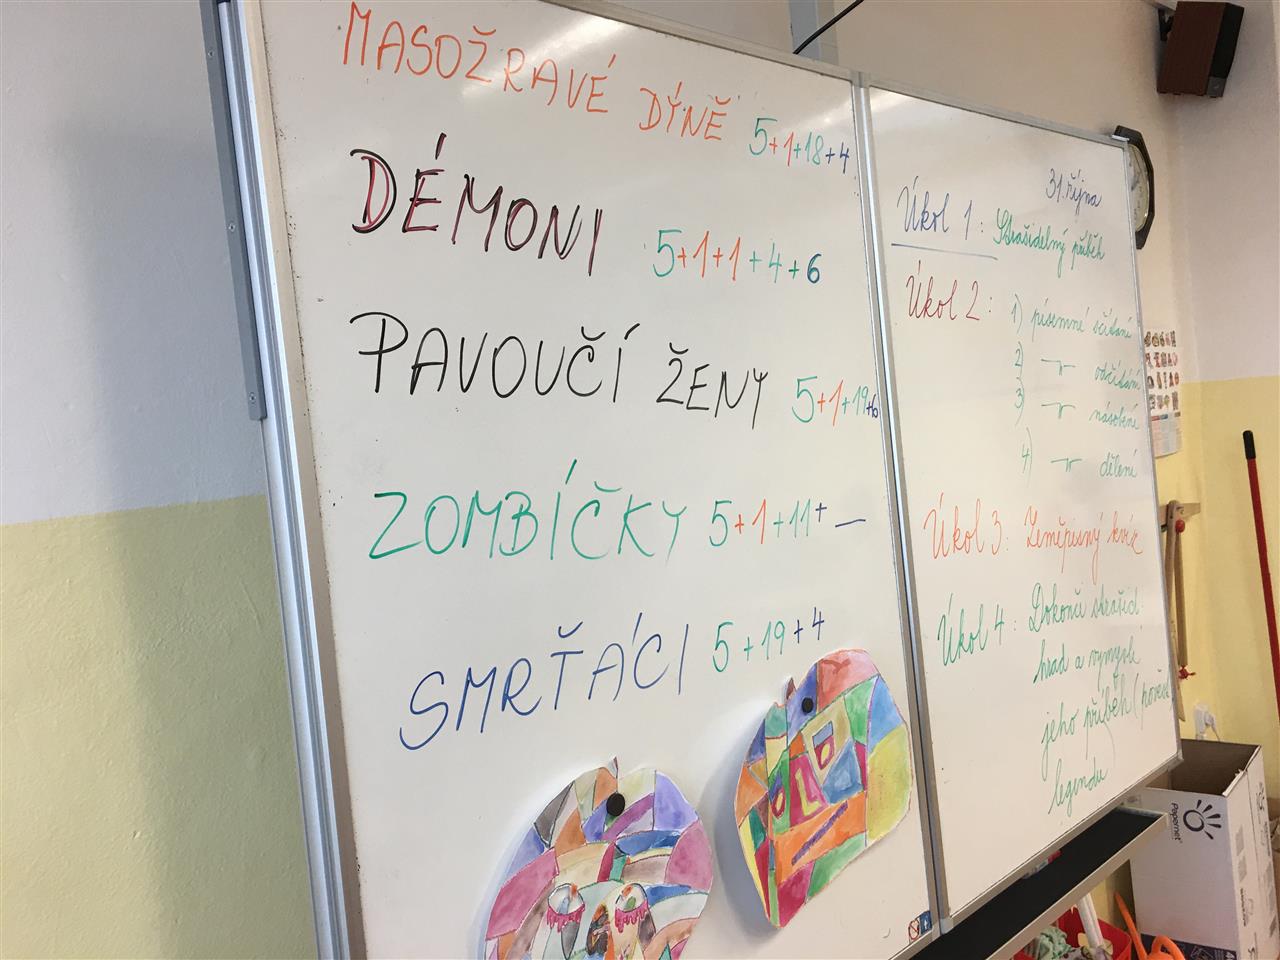 MASOŽRAVÉ DÝNĚ 5+1+18+4
DÉMONI 5+1+1+4+6
PAVOUČÍ ŽENY 5+1+19+6
ZOMBÍČKY 5+1+11+—
SMRŤÁCI 5+19+4
31. října
Úkol 1: Strašidelný příběh
Úkol 2: 1) písemné sčítání
2) —"— odčítání
3) —"— násobení
4) —"— dělení
Úkol 3: Zeměpisný kvíz
Úkol 4: Dokonči strašid.
hrad a vymysli
jeho příběh (pověst
legendu)
Papernet